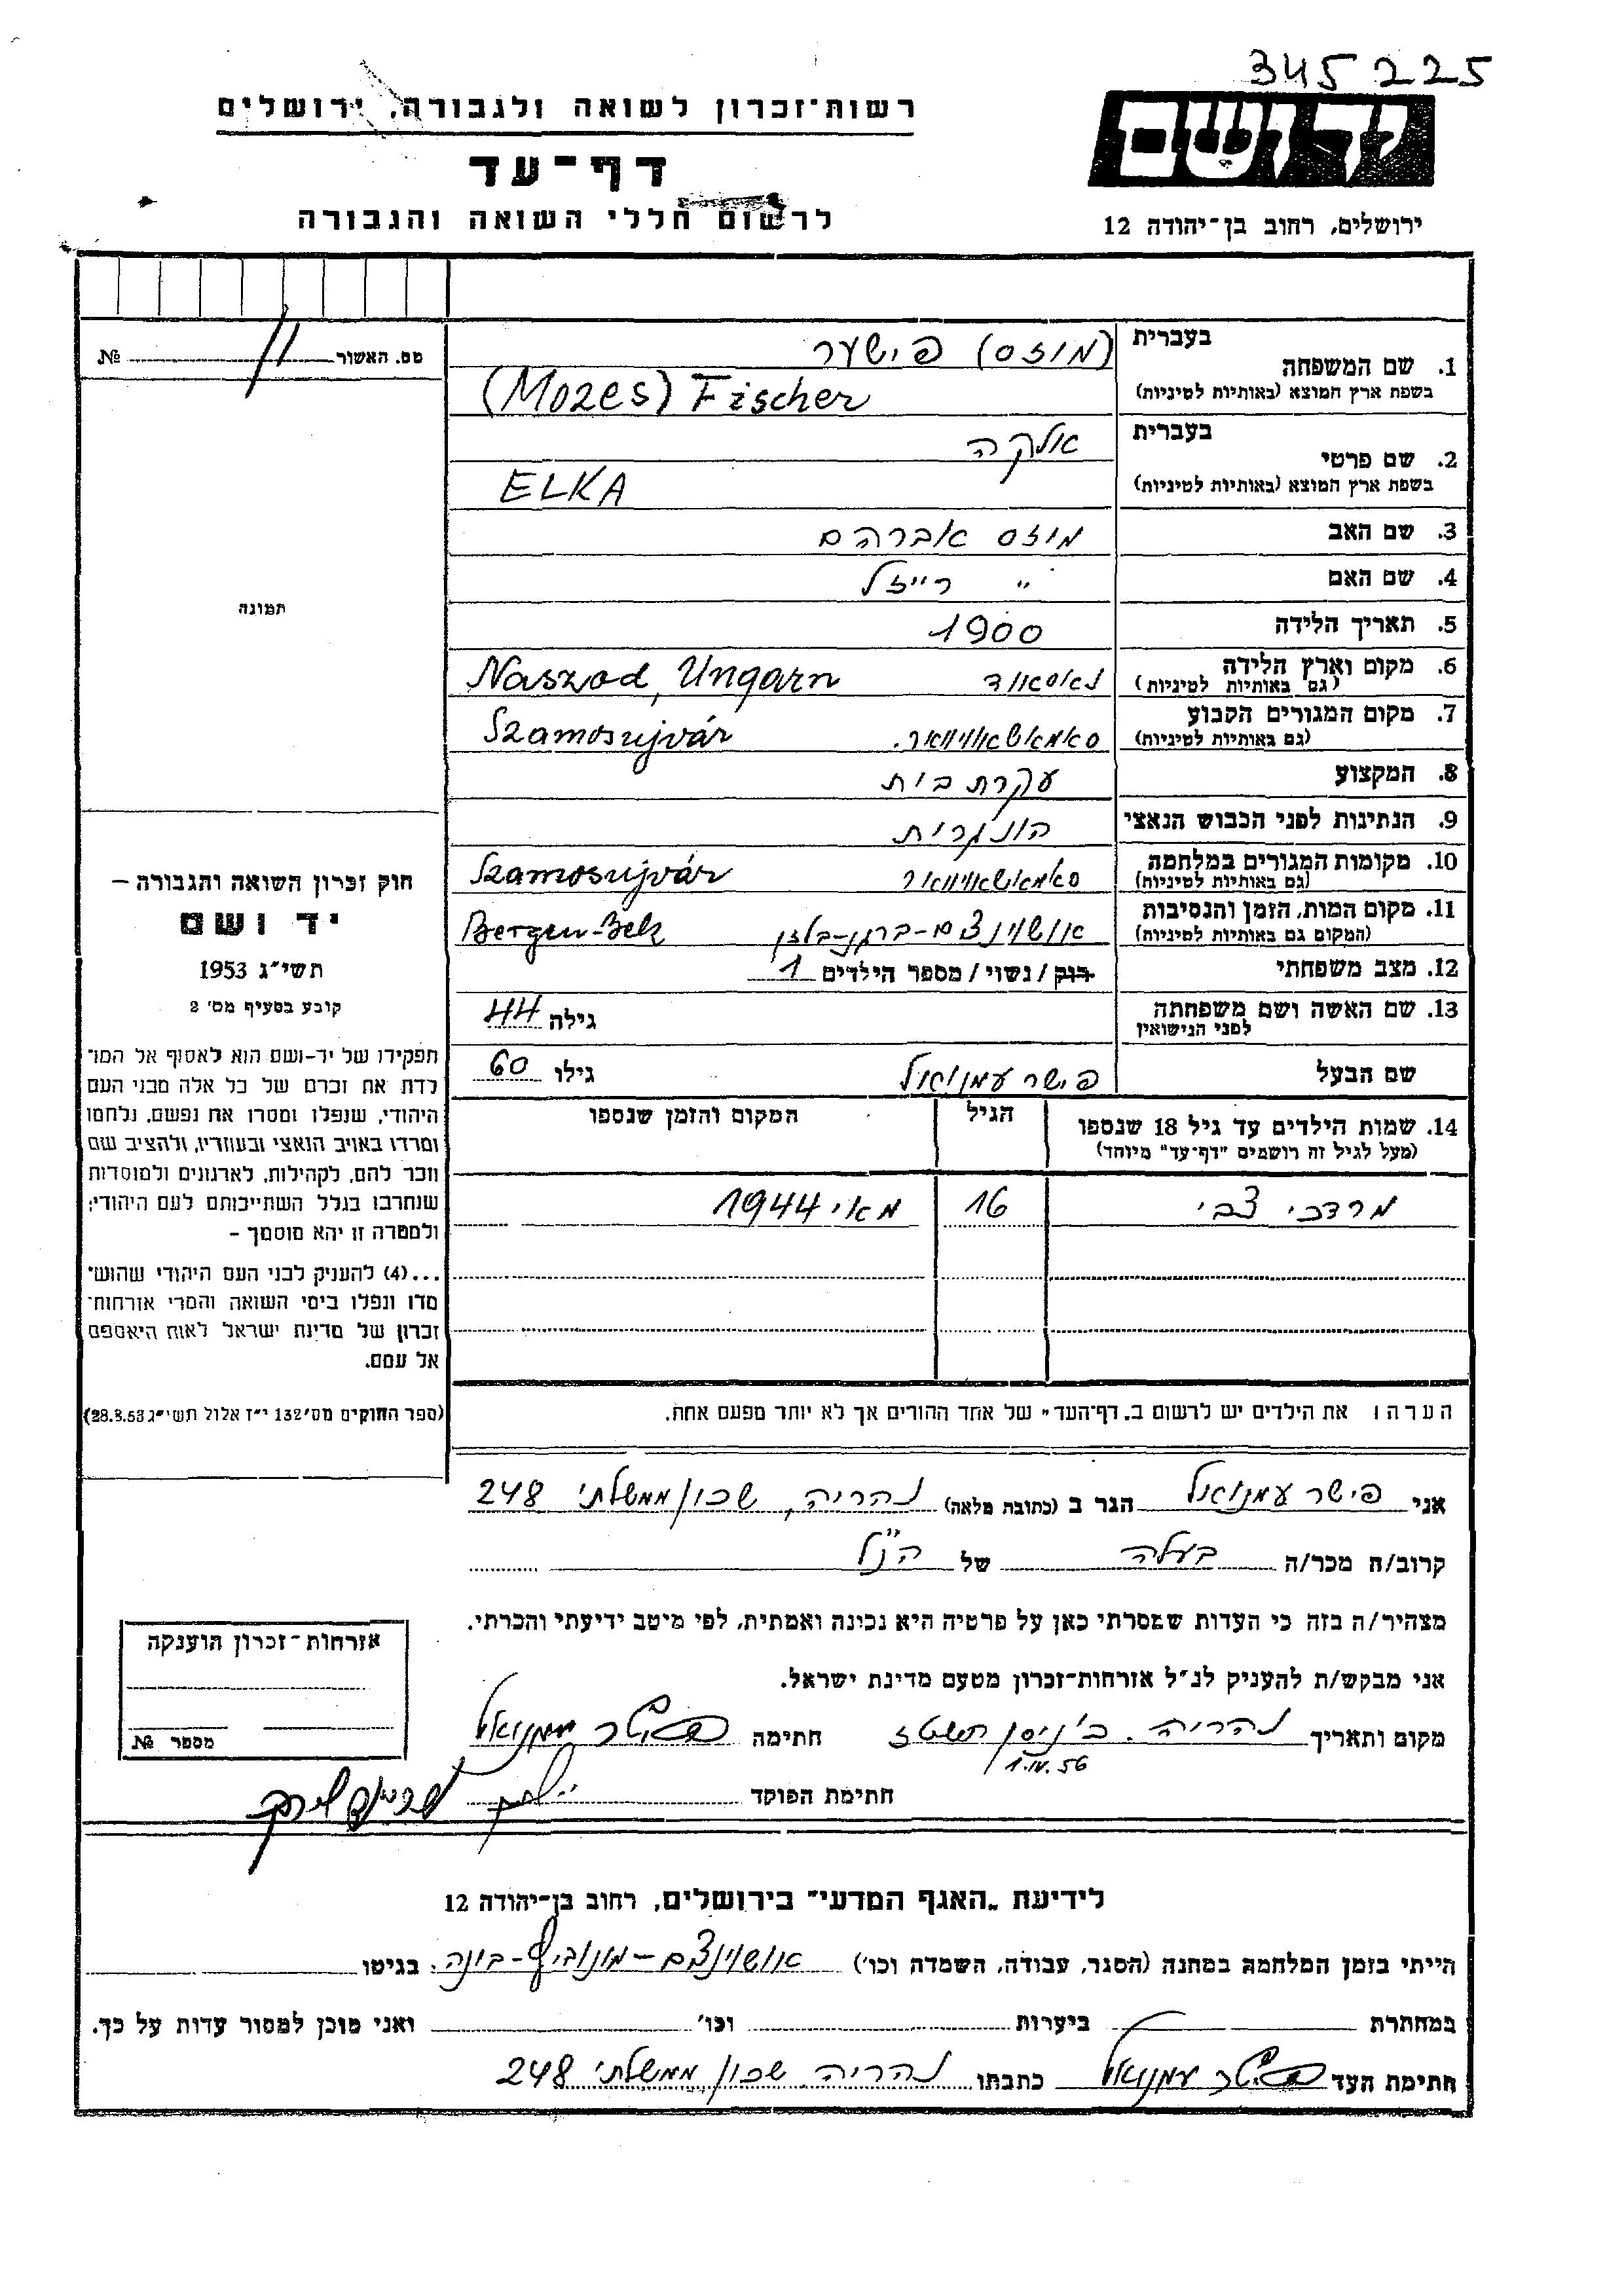 345225
רשות־זכרון לשואה ולגבורה, ירושלים
יד ושם
דף־עד
לרשום חללי השואה והגבורה
ירושלים, רחוב בן־יהודה 12
מס. האשור № 11
1. שם המשפחה בעברית (מוזס) פישער
בשפת ארץ המוצא (באותיות לטיניות) (Mozes) Fischer
2. שם פרטי בעברית אלקה
בשפת ארץ המוצא (באותיות לטיניות) ELKA
3. שם האב מוזס אברהם
4. שם האם " רייזל
5. תאריך הלידה 1900
6. מקום וארץ הלידה (גם באותיות לטיניות) נאסאוד Naszod, Ungarn
7. מקום המגורים הקבוע (גם באותיות לטיניות) סאמאשאוויוואר. Szamosujvár
8. המקצוע עקרת בית
9. הנתינות לפני הכבוש הנאצי הונגרית
10. מקומות המגורים במלחמה (גם באותיות לטיניות) סאמאשאוויוואר Szamosujvár
11. מקום המות, הזמן והנסיבות (המקום גם באותיות לטיניות) אושוינצים-ברגן-בלזן Bergen-Belz
12. מצב משפחתי רווק / נשוי / מספר הילדים 1
13. שם האשה ושם משפחתה לפני הנישואין גילה 44
שם הבעל פישר עמנואל גילו 60
14. שמות הילדים עד גיל 18 שנספו
(מעל לגיל זה רושמים "דף־עד" מיוחד)
הגיל
המקום והזמן שנספו
מרדכי צבי 16 מאי 1944
הערה: את הילדים יש לרשום ב„דף־העד" של אחד ההורים אך לא יותר מפעם אחת.
תמונה
חוק זכרון השואה והגבורה –
יד ושם
תשי"ג 1953
קובע בסעיף מס' 2
תפקידו של יד-ושם הוא לאסוף אל המו־
לדת את זכרם של כל אלה מבני העם
היהודי, שנפלו ומסרו את נפשם, נלחמו
ומרדו באויב הנאצי ובעוזריו, ולהציב שם
וזכר להם, לקהילות, לארגונים ולמוסדות
שנחרבו בגלל השתייכותם לעם היהודי;
ולמטרה זו יהא מוסמך –
...(4) להעניק לבני העם היהודי שהוש־
מדו ונפלו בימי השואה והמרי אזרחות־
זכרון של מדינת ישראל לאות היאספם
אל עמם.
(ספר החוקים מס' 132 י"ז אלול תשי"ג 28.8.53)
אני פישר עמנואל הגר ב (כתובת מלאה) נהריה, שכון ממשלתי 248
קרוב/ה מכר/ה בעלה של הנ"ל
מצהיר/ה בזה כי העדות שמסרתי כאן על פרטיה היא נכונה ואמתית, לפי מיטב ידיעתי והכרתי.
אני מבקש/ת להעניק לנ"ל אזרחות־זכרון מטעם מדינת ישראל.
מקום ותאריך נהריה. כ' ניסן תשטז חתימה פישר עמנואל
1.IV.56
חתימת הפוקד
אזרחות־זכרון הוענקה
מספר №
לידיעת „האגף המדעי" בירושלים, רחוב בן־יהודה 12
הייתי בזמן המלחמה במחנה (הסגר, עבודה, השמדה וכו') אושוינצים-מונוביץ-בונה. בגיטו
במחתרת ביערות וכו' ואני מוכן למסור עדות על כך.
חתימת העד פישר עמנואל כתבתו נהריה שכון ממשלתי 248